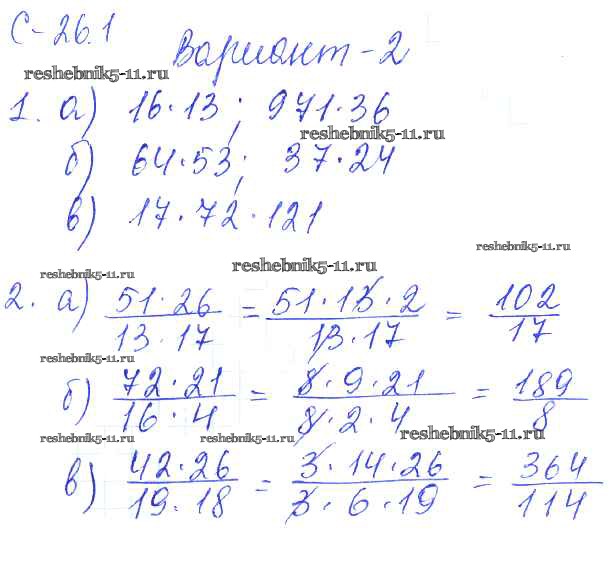 С-26.1
Вариант-2
reshebnik5-11.ru
1. а) 16·13; 971·36
reshebnik5-11.ru
б) 64·53; 37·24
в) 17·72·121
reshebnik5-11.ru
reshebnik5-11.ru
reshebnik5-11.ru
2. а) 51·26/13·17 = 51·13·2/13·17 = 102/17
reshebnik5-11.ru
б) 72·21/16·4 = 8·9·21/8·2·4 = 189/8
reshebnik5-11.ru
reshebnik5-11.ru
reshebnik5-11.ru
в) 42·26/19·18 = 3·14·26/3·6·19 = 364/114